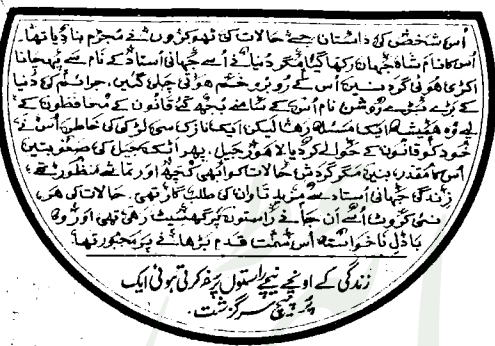 اُس شخص کی داستان جسے حالات کی ٹھوکروں نے مجرم بنا دیا تھا۔
اُس کا نام شاہجہان رکھا گیا مگر دنیا نے اُسے جہانی اُستاد کے نام سے پہچانا
اکڑی ہوئی گردنیں اُس کے رُوبرو خم ہوتی چلی گئیں۔ جرائم کی دُنیا
کے بڑے بڑے روشن نام اُس کے سامنے بُجھ گئے۔ قانون کے محافظوں کے
لیے وہ ہمیشہ ایک مسئلہ رہا لیکن ایک نازک سی لڑکی کی خاطر اُس نے
خود کو قانون کے حوالے کر دیا۔ لاہور جیل، پھر اٹک جیل کی صعوبتیں
اُس کا مقدر بنیں مگر گردشِ حالات کو ابھی کچھ اور تماشے منظور تھے،
زندگی جہانی اُستاد سے مزید تاوان کی طلب گار تھی۔ حالات کی ہر
نئی کروٹ اُسے اَن جانے راستوں پر گھسیٹ رہی تھی اور وہ
بادلِ ناخواستہ اُس سمت قدم بڑھانے پر مجبور تھا۔
زندگی کے اونچے نیچے راستوں پر سفر کرتی ہوئی ایک
پُر پیچ سرگزشت۔